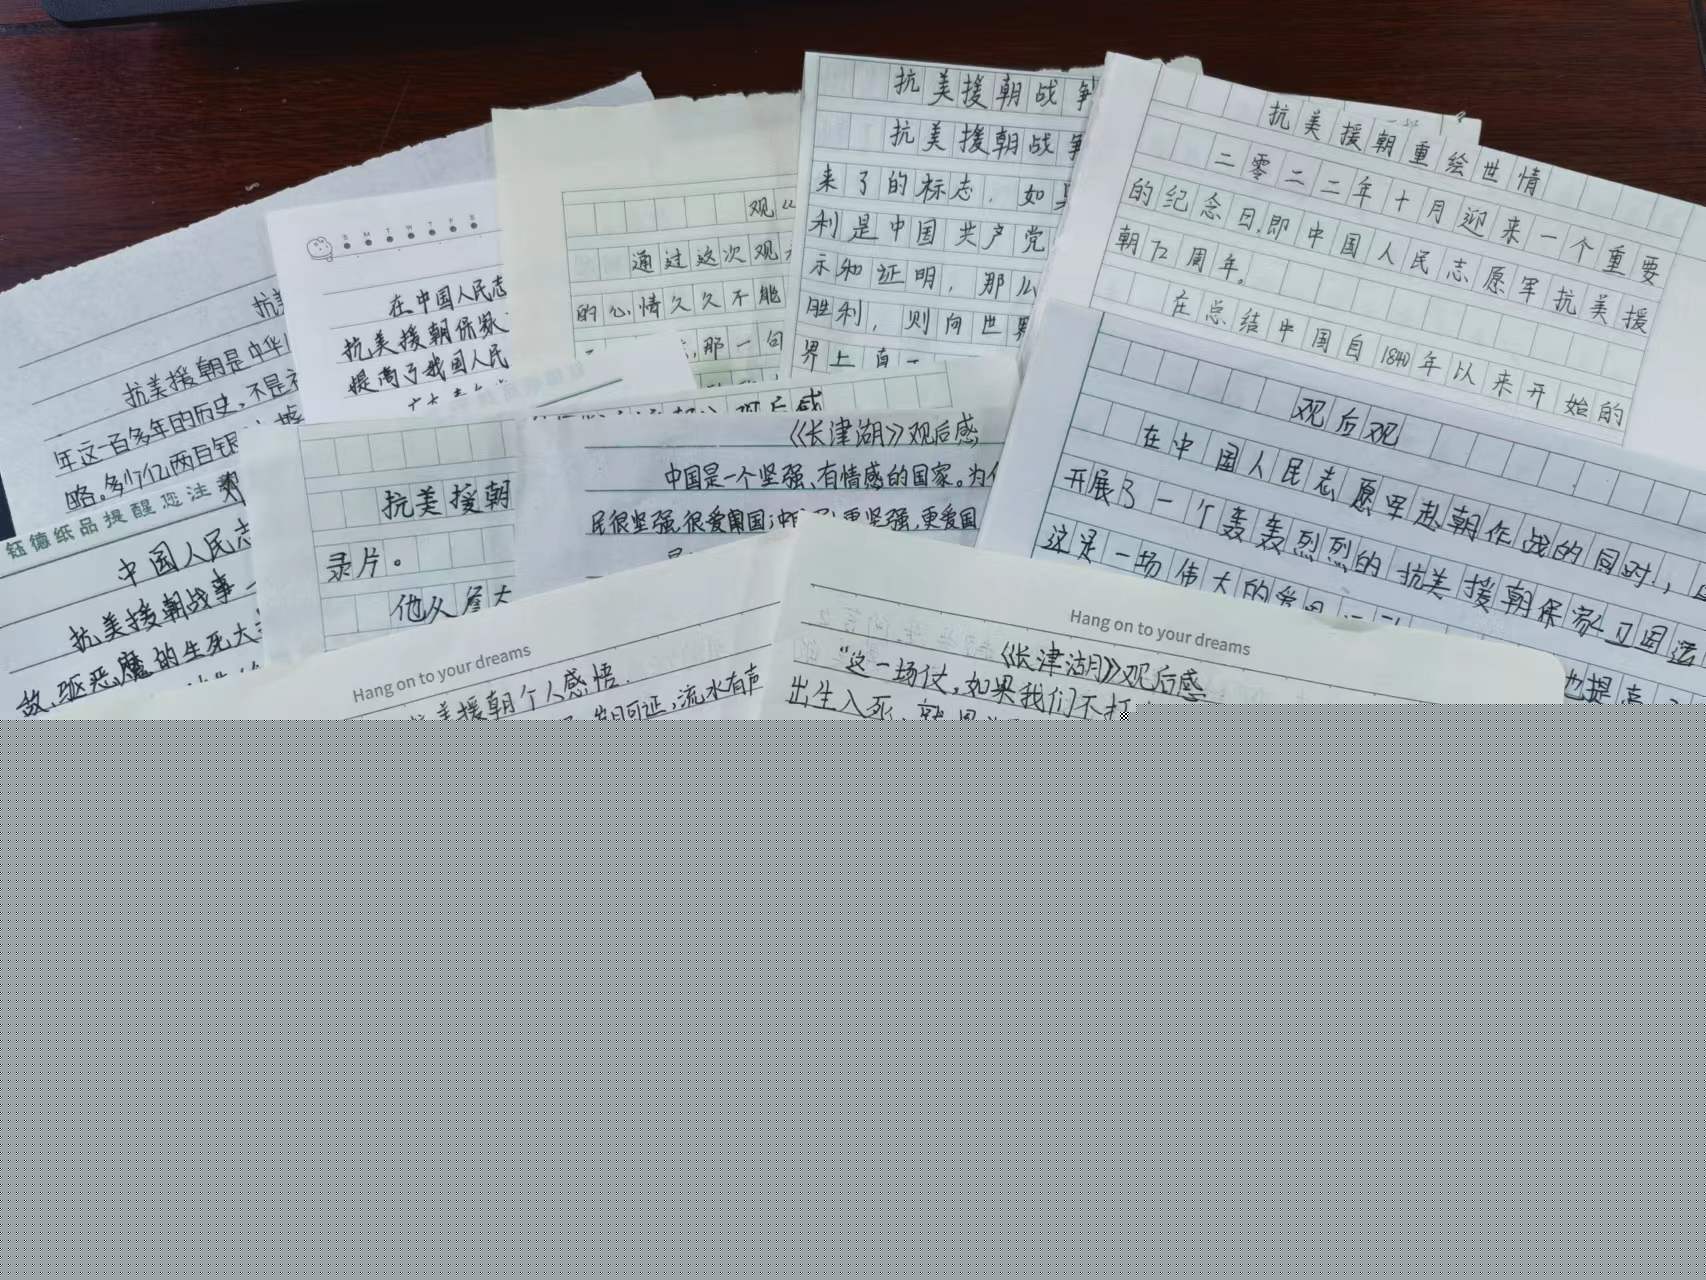 抗美援朝是中华
年这一百多年的历史,不是
略。
钰德纸品提醒您注
中国人民志
抗美援朝战事一
敌,驱恶魔的生死大
S M T W T F S
在中国人民志
抗美援朝保家
提高了我国人民
观《
通过这次观
的心情久久不能
那一句
抗美援朝战争
抗美援朝战争
来了的标志,如
利是中国共产党
示和证明,那么
胜利,则向世界
界上
抗美援朝重绘世情
二零二二年十月迎来一个重要
的纪念日,即中国人民志愿军抗美援
朝72周年。
在总结中国自1840年以来开始的
观后观
在中国人民志愿军赴朝作战的同时,
开展了一个轰轰烈烈的抗美援朝保家卫国运
这是一场伟大的爱国
也提高
观后感
抗美援朝
录片。
他
《长津湖》观后感
中国是一个坚强、有情感的国家。为什
民很坚强,很爱国;中 更坚强,更爱国
Hang on to your dreams
抗美援朝个人感悟.
可证,流水有声
Hang on to your dreams
《长津湖》观后感
“这一场仗,如果我们不打
出生入死